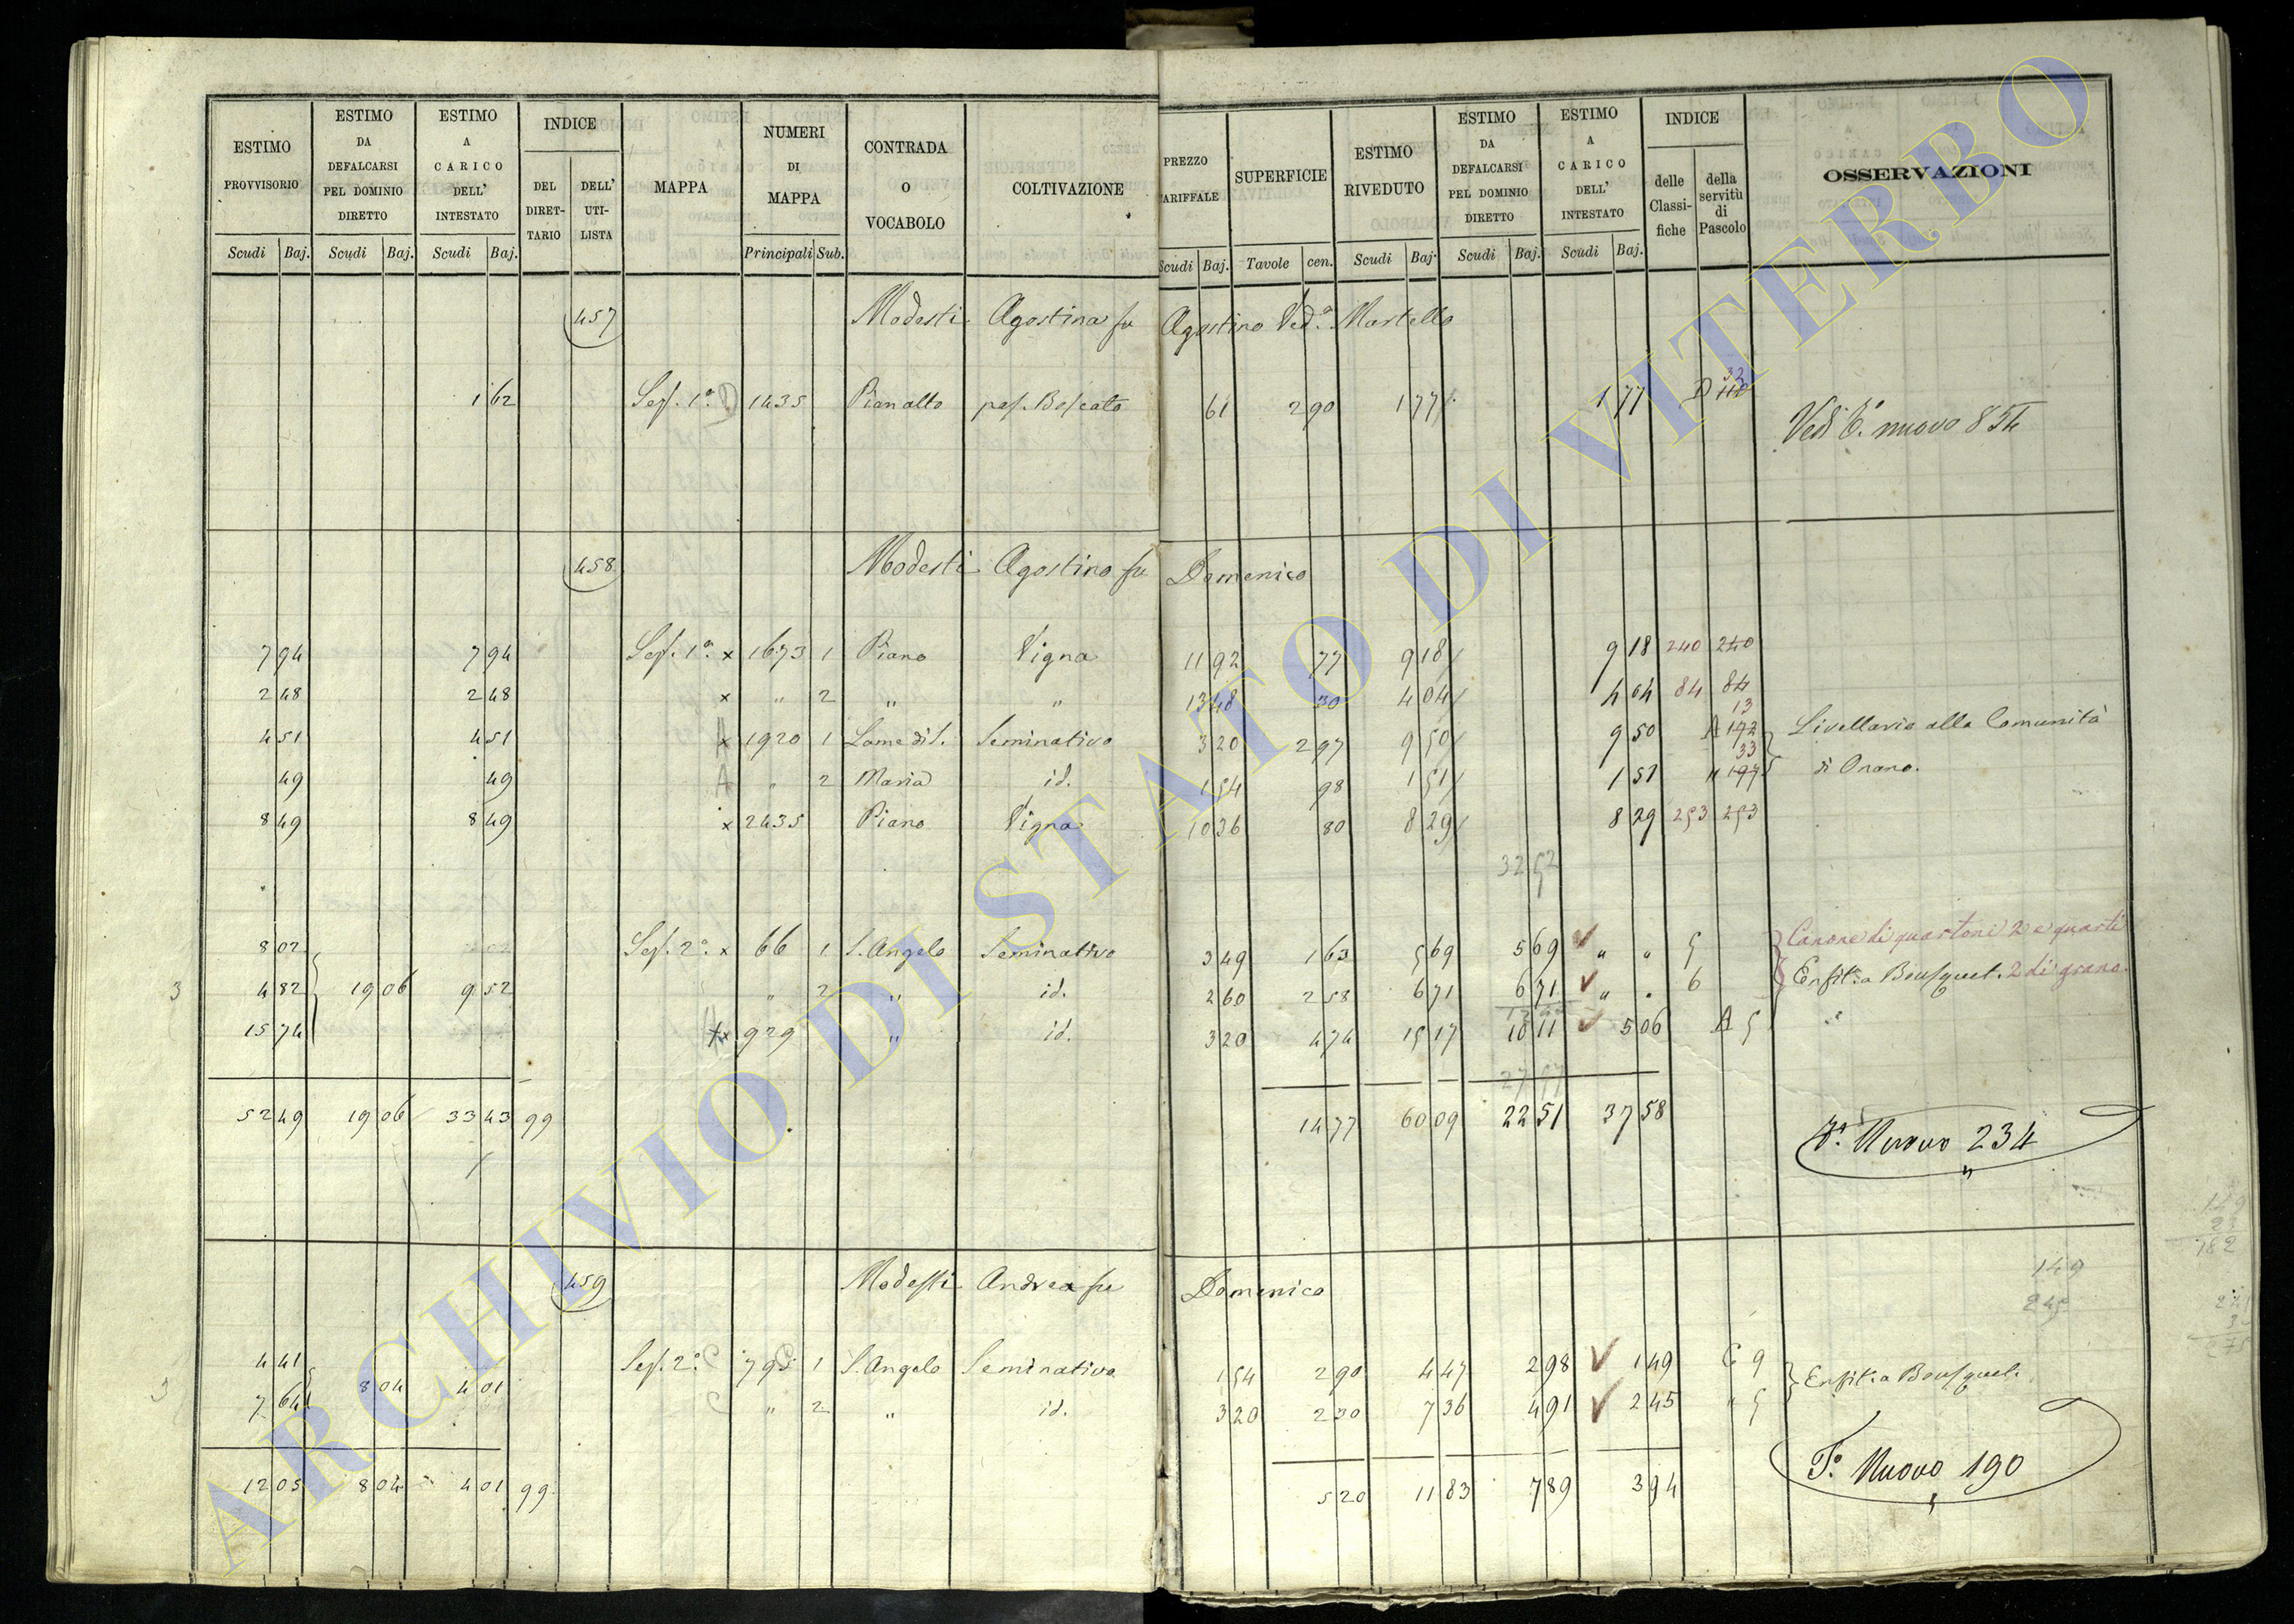 ESTIMO PROVVISORIO | ESTIMO DA DEFALCARSI PEL DOMINIO DIRETTO | ESTIMO A CARICO DELL' INTESTATO | INDICE DEL DIRET-TARIO | DELL' UTI-LISTA | MAPPA | NUMERI DI MAPPA | CONTRADA O VOCABOLO | COLTIVAZIONE | PREZZO TARIFFALE | SUPERFICIE | ESTIMO RIVEDUTO | ESTIMO DA DEFALCARSI PEL DOMINIO DIRETTO | ESTIMO A CARICO DELL' INTESTATO | INDICE delle Classi-fiche | della servitù di Pascolo | OSSERVAZIONI
Scudi Baj. Scudi Baj. Scudi Baj. Principali Sub. Scudi Baj. Tavole cen. Scudi Baj. Scudi Baj. Scudi Baj.
457 Modesti Agostina fu Agostino Ved.a Martello
1 62 Sez. 1a D 1435 Pianalto pas. Boscato 61 2 90 1 77 1 77 D 32
Vedi nuovo 854
458 Modesti Agostino fu Domenico
7 94 7 94 Sez. 1a x 1673 1 Piano Vigna 11 92 77 9 18 9 18 240 240
2 48 2 48 x " 2 " " 13 48 30 4 04 4 04 84 84
4 51 4 51 x 1920 1 Lame di S. Seminativo 3 20 2 97 9 50 9 50 A 192 13 Livellario alla Comunità
49 49 A " 2 Maria id. 1 54 98 1 51 1 51 " 197 33 di Onano.
8 49 8 49 x 2435 Piano Vigna 10 36 80 8 29 8 29 253 253
32 52
8 02 Sez. 2a x 66 1 S. Angelo Seminativo 3 49 1 63 5 69 5 69 " " 5 Canone di quartoni 2 e quarti
3 4 82 19 06 9 52 " 2 " id. 2 60 2 58 6 71 6 71 " " 6 Enfit. a Bousquet. 2 di grano.
15 74 x 929 " id. 3 20 4 74 15 17 10 11 5 06 A 5 "
27 57
52 49 19 06 33 43 99 14 77 60 09 22 51 37 58
F.o Nuovo 234
149
23
182
459 Modesti Andrea fu Domenico
149
245
4 41 Sez. 2a C 795 1 S. Angelo Seminativo 1 54 2 90 4 47 2 98 1 49 C 9 Enfit. a Bousquet.
3 7 64 8 04 4 01 C " 2 " id. 3 20 2 30 7 36 4 91 2 45 " 5
12 05 8 04 4 01 99 5 20 11 83 7 89 3 94
F.o Nuovo 190
ARCHIVIO DI STATO DI VITERBO